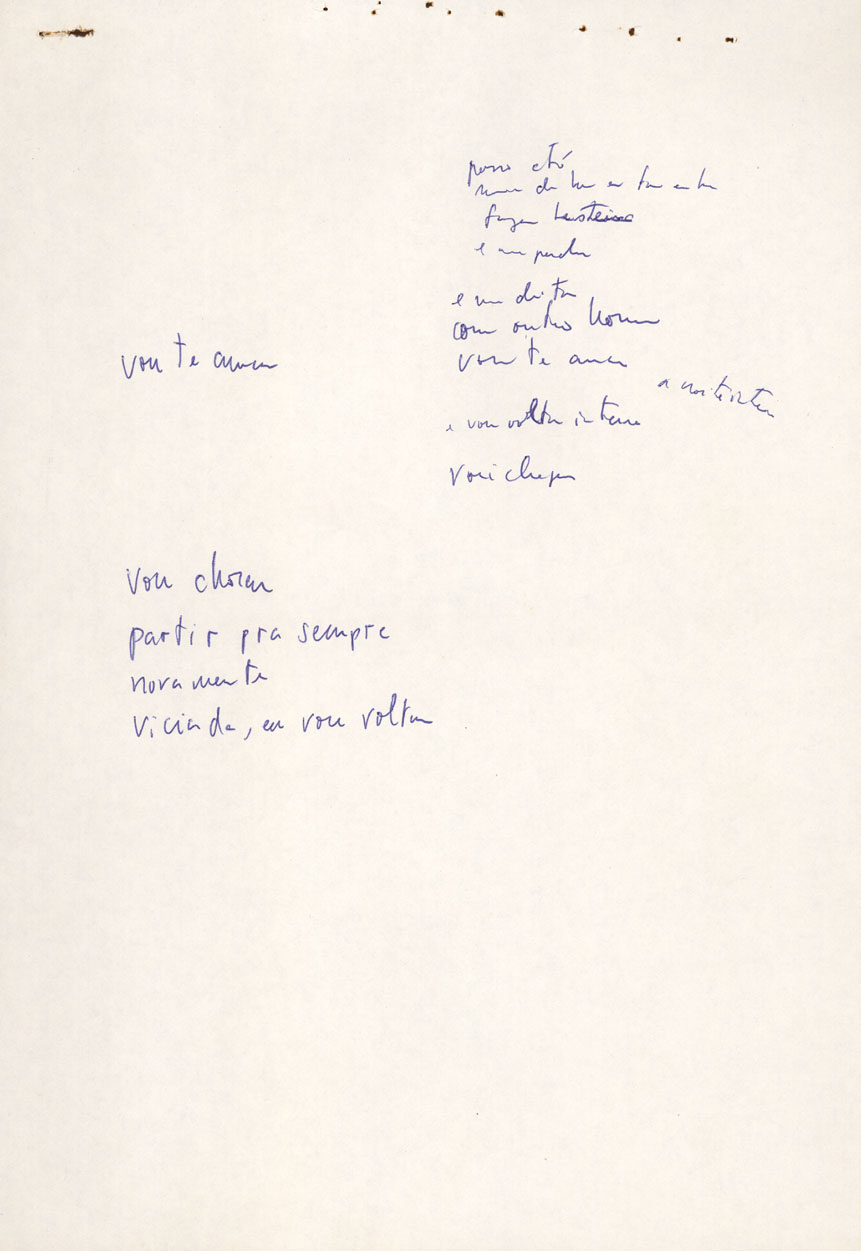 posso até
fazer
e me perder
e me deitar
com outro homem
vou te amar
a noite inteira
e vou voltar inteira
vou chegar
vou te amar
vou chorar
partir pra sempre
novamente
viciada, eu vou voltar